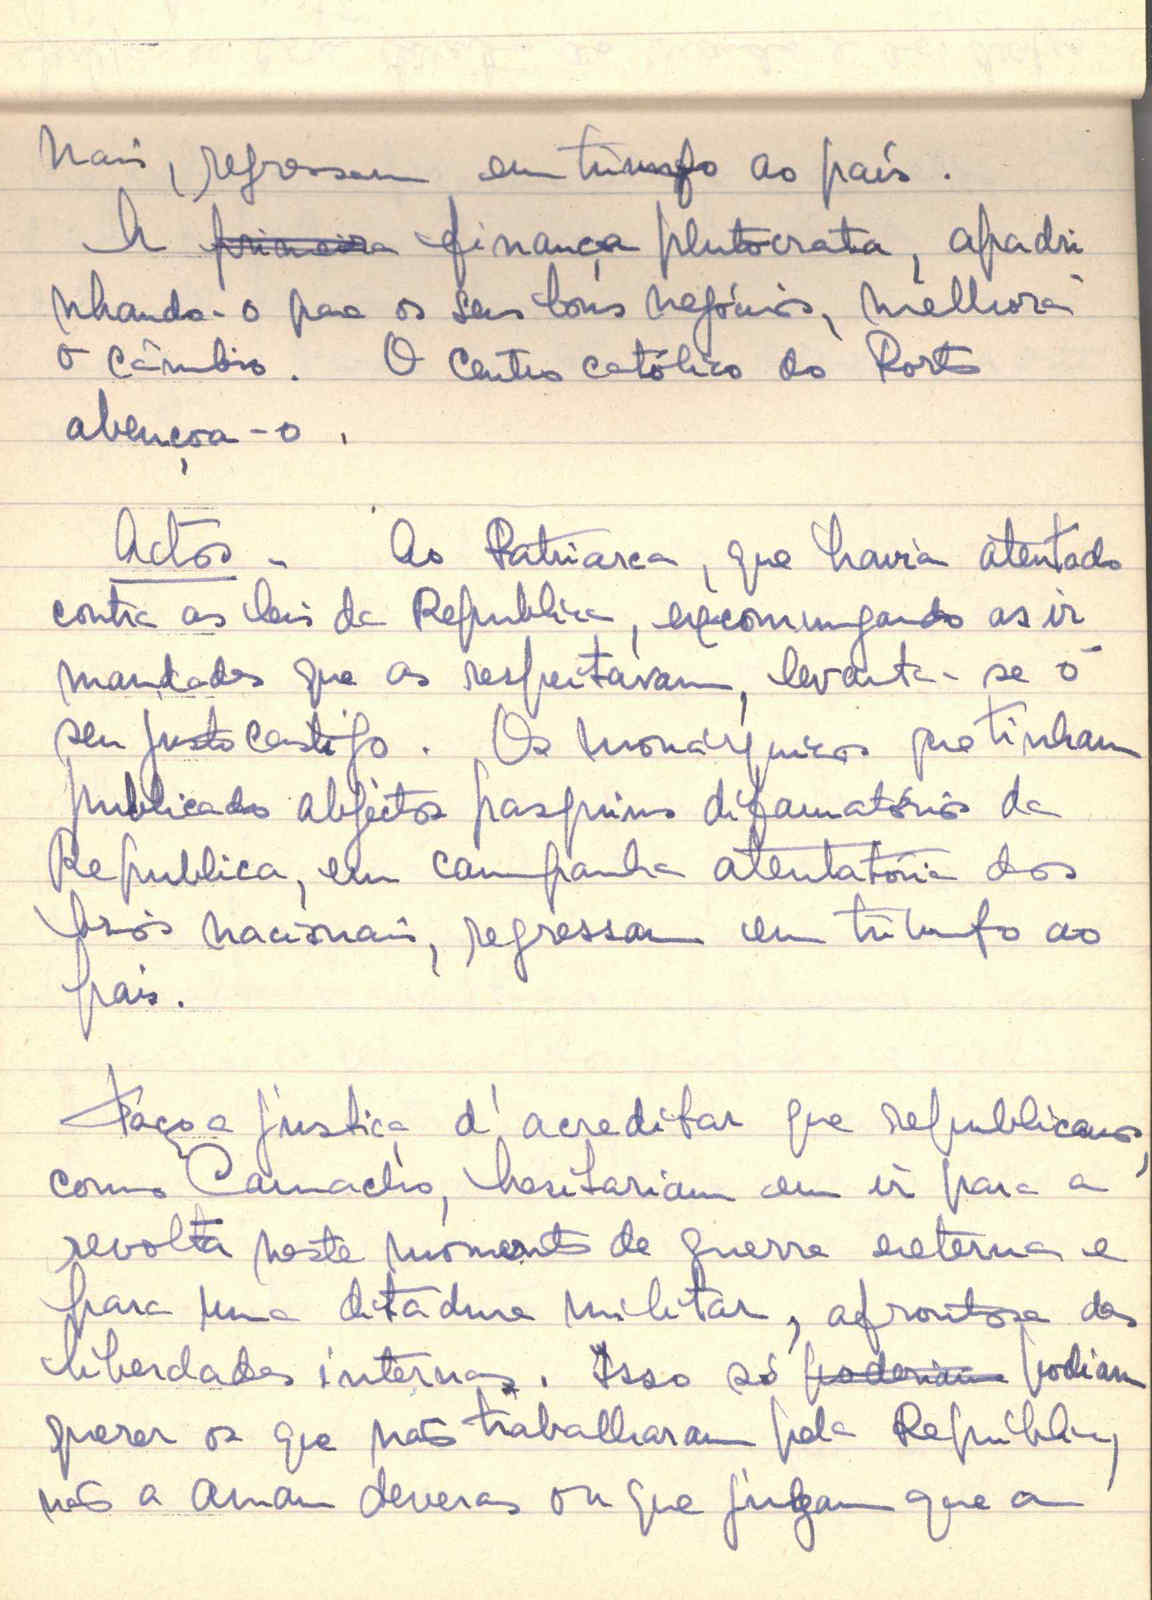 nais, regressam em triunfo ao país.
A primeira finança plutocrata, apadri
nhando-o para os seus bons negócios, melhora
o câmbio. O Centro católico do Porto
abençoa-o.
Actos - Ao Patriarca, que havia atentado
contra as leis da Republica, excomungando as ir
mandades que as respeitavam, levanta-se o
seu justo castigo. Os monárquicos que tinham
publicado abjectos pasquins difamatórios da
Republica, em campanha atentatória dos
brios nacionais, regressam em triunfo ao
país.
Faço a justiça d'acreditar que republicanos,
como Camacho, hesitariam em ir para a
revolta neste momento de guerra externa e
para uma ditadura militar, afrontosa das
liberdades internas. Isso só poderiam podiam
querer os que não trabalharam pela Repúblic,
não a amam deveras ou que julgam que a